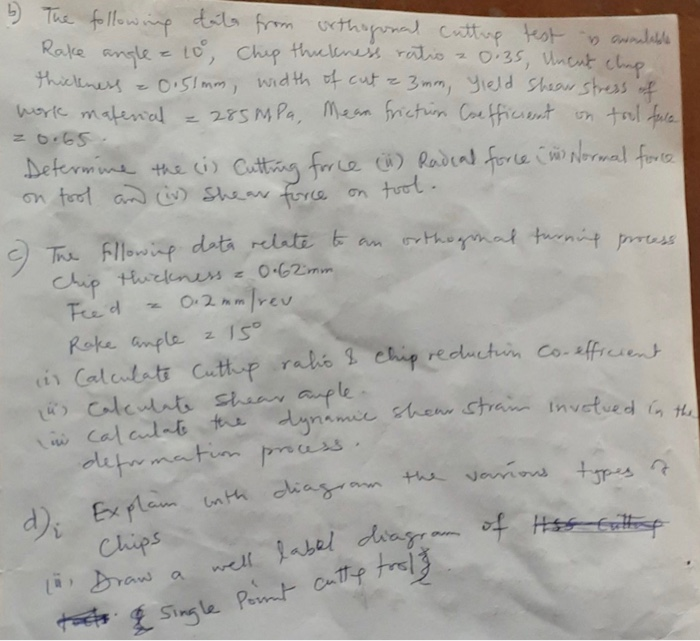 b) The following data from orthogonal cutting test is available
Rake angle = 10°, Chip thickness ratio = 0.35, Uncut chip
thickness = 0.51mm, width of cut = 3mm, Yield Shear stress of
work material = 285 MPa, Mean friction Coefficient on tool face
= 0.65.
Determine the (i) Cutting force (ii) Radial force (iii) Normal force
on tool and (iv) Shear force on tool.
c) The following data relate to an orthogonal turning process
Chip thickness = 0.62mm
Feed = 0.2 mm/rev
Rake angle = 15°
(i) Calculate Cutting ratio & chip reduction co-efficient
(ii) Calculate Shear angle.
(iii) Calculate the dynamic shear strain involved in the
deformation process.
d) i Explain with diagram the various types of
Chips
(ii) Draw a well label diagram of HSS Cutting
tools. & Single Point cutting tool